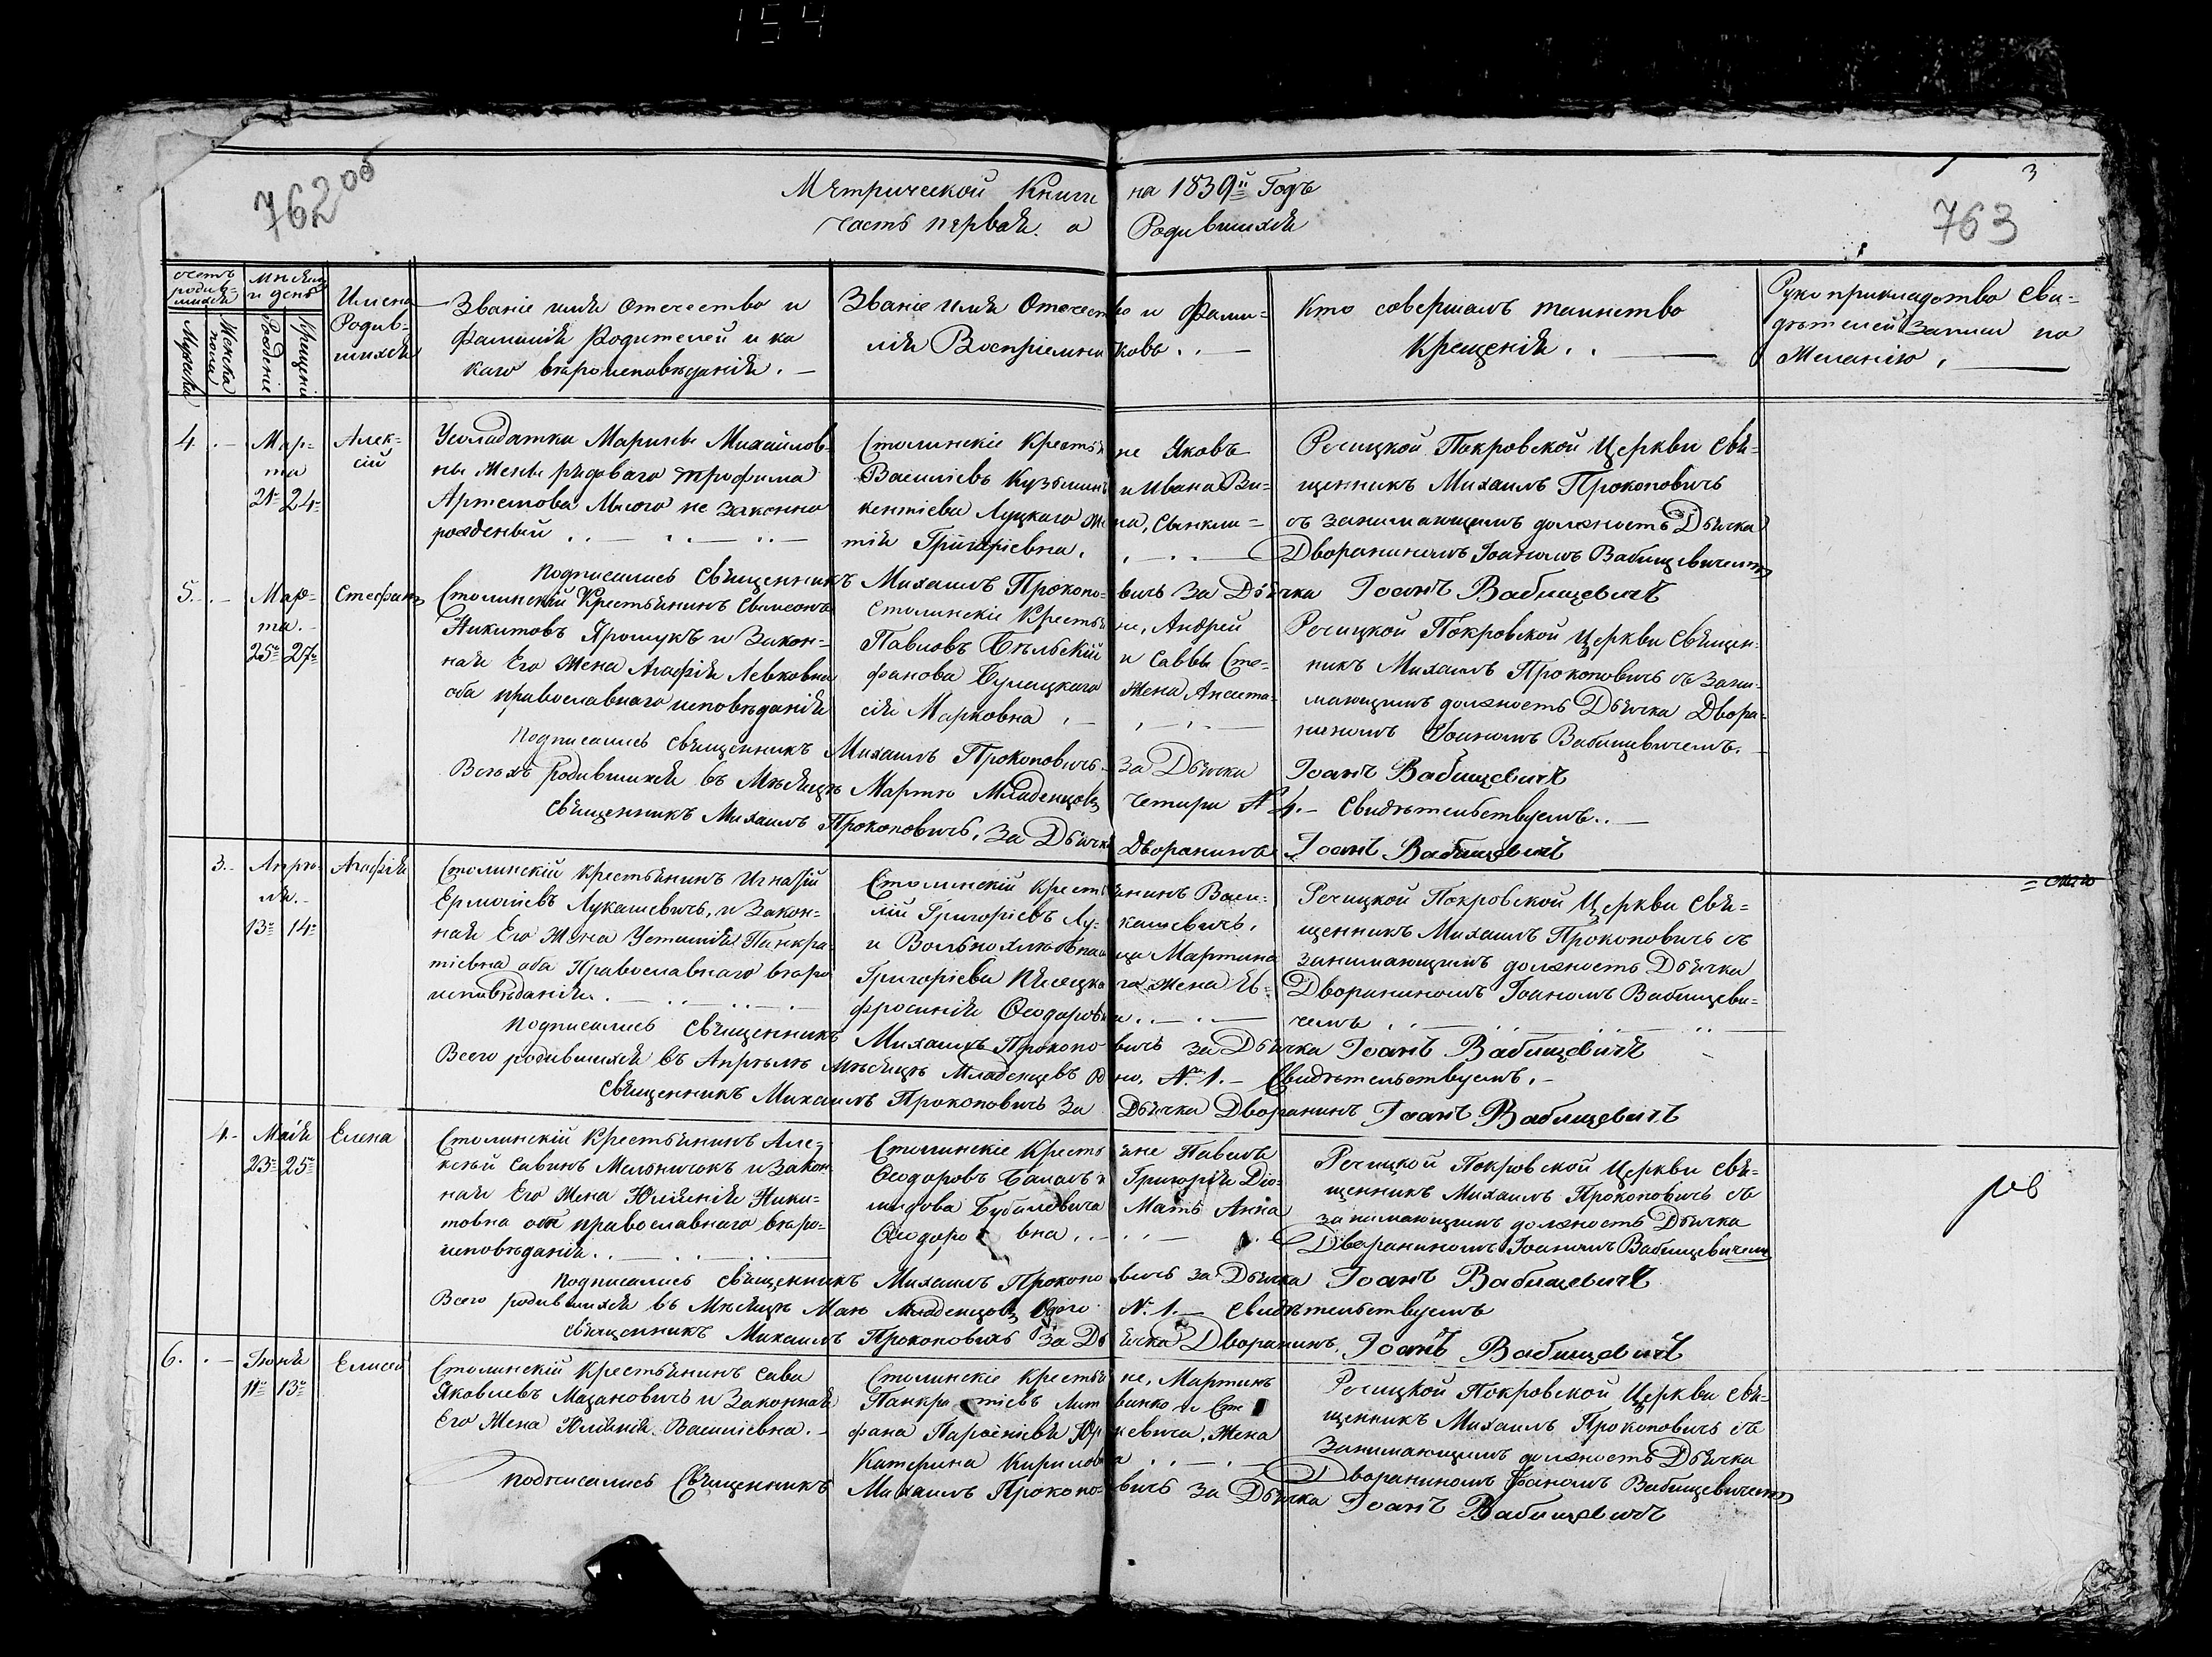 154
762 об
3
763
Метрической Книги на 1839й Годъ
часть первая о Родившихся
Счетъ родив-шихся
Мѣсяцъ и день
Имена Родив-шихся
Званіе имя Отечество и
фамилія Родителей и ка
каго вѣроисповѣданія. —
Званіе имя Отечество и Фами-
лія Воспріемниковъ. . —
Кто совершалъ таинство
Крещенія. . —
Рукоприкладство сви-
дѣтелей записи по
Желанію. —
Мужска
Женска пола
Рожденіе
Крещеніе
4. — Мар-та 21го 24го
Алек-сій
Усолдатки Марины Михайлов-
ны жены рядоваго Трофима
Артемова не законно
рожденный . . —
Столинскіе Крестьяне Яковъ
Василіевъ Кузьмичъ и Ивана Ви-
кентіева Луцкаго жена, Синкли-
тія Григоріевна.
Речицкой Покровской Церкви Свя-
щенникъ Михаилъ Прокоповичъ
съ занимающимъ должность Дьячка
Дворяниномъ Іоаномъ Вабищевичемъ
Подписались Священникъ Михаилъ Прокоповичъ За Дьячка Іоанъ Вабищевичъ
5. — Мар-та. 25го 27го
Стефанъ
Столинскій Крестьянинъ Симеонъ
Никитовъ Ярошукъ и Закон-
ная Его Жена Агафія Левковна
оба православнаго исповѣданія
Столинскіе Крестьяне, Андрей
Павловъ Бѣльскій и Саввы Сте-
фанова Булацкаго Жена Анаста-
сія Марковна . —
Речицкой Покровской Церкви Священ-
никъ Михаилъ Прокоповичъ съ зани-
мающимъ должность Дьячка Дворя-
ниномъ Іоаномъ Вабищевичемъ.
Подписались Священникъ Михаилъ Прокоповичъ За Дьячка Іоанъ Вабищевичъ
Всѣхъ родившихся въ Мѣсяцѣ Мартѣ Младенцовъ четыри № 4. — Свидѣтельствуемъ. . —
Священникъ Михаилъ Прокоповичъ, За Дьячка Дворянинъ Іоанъ Вабищевичъ
3. — Апрѣ-ля. 13го 14го
Агафія
Столинскій Крестьянинъ Игнатій
Ермоліевъ Лукашевичъ, и Закон-
ная Его Жена Устинія Панкра-
тіевна оба Православнаго вѣро
исповѣданія. —
Столинскій Крестьянинъ Васи-
лій Григоріевъ Лу-кашевичъ,
и Мартина
Григоріева Пясецкаго жена Ев-
фросинія Ѳеодоровна . . —
Речицкой Покровской Церкви Свя-
щенникъ Михаилъ Прокоповичъ съ
занимающимъ должность Дьячка
Дворяниномъ Іоаномъ Вабищеви-
чемъ . . —
Подписались Священникъ Михаилъ Прокоповичъ За Дьячка Іоанъ Вабищевичъ
Всего родившихся въ Апрѣлѣ Мѣсяцѣ Младенцевъ № 1. — Свидѣтельствуемъ. —
Священникъ Михаилъ Прокоповичъ За Дьячка Дворянинъ Іоанъ Вабищевичъ
4. — Мая 23го 25го
Елена
Столинскій Крестьянинъ Але-
ксѣй Савинъ Мельничокъ и Закон
ная Его Жена Юліянія Ники-
товна оба православнаго вѣро-
исповѣданія. . —
Столинскіе Крестьяне Павелъ
Ѳеодоровъ и Григорія Діо-
мидова Бубаловича Мать Анна
Ѳеодоровна . . —
Речицкой Покровской Церкви Свя-
щенникъ Михаилъ Прокоповичъ съ
занимающимъ должность Дьячка
Дворяниномъ Іоаномъ Вабищевичемъ
Подписались Священникъ Михаилъ Прокоповичъ за Дьячка Іоанъ Вабищевичъ
Всего родившихся въ Мѣсяцѣ Маю Младенцовъ Одого № 1. — Свидѣтельствуемъ
Священникъ Михаилъ Прокоповичъ За Дьячка Дворянинъ, Іоанъ Вабищевичъ
6. — Іюня 11го 13го
Елисей
Столинскій Крестьянинъ Сава
Яковлевъ Мазановичъ и Законная
Его Жена Юліянія Василіевна. —
Столинскіе Крестьяне, Мартинъ
Панкратіевъ Литвинко и Сте
фана Парѳеніева Жена
Катерина Кирилова . . —
Речицкой Покровской Церкви Свя-
щенникъ Михаилъ Прокоповичъ съ
Занимающимъ должность Дьячка
Дворяниномъ Іоаномъ Вабищевичемъ
Подписались Священникъ Михаилъ Прокоповичъ за Дьячка Іоанъ Вабищевичъ